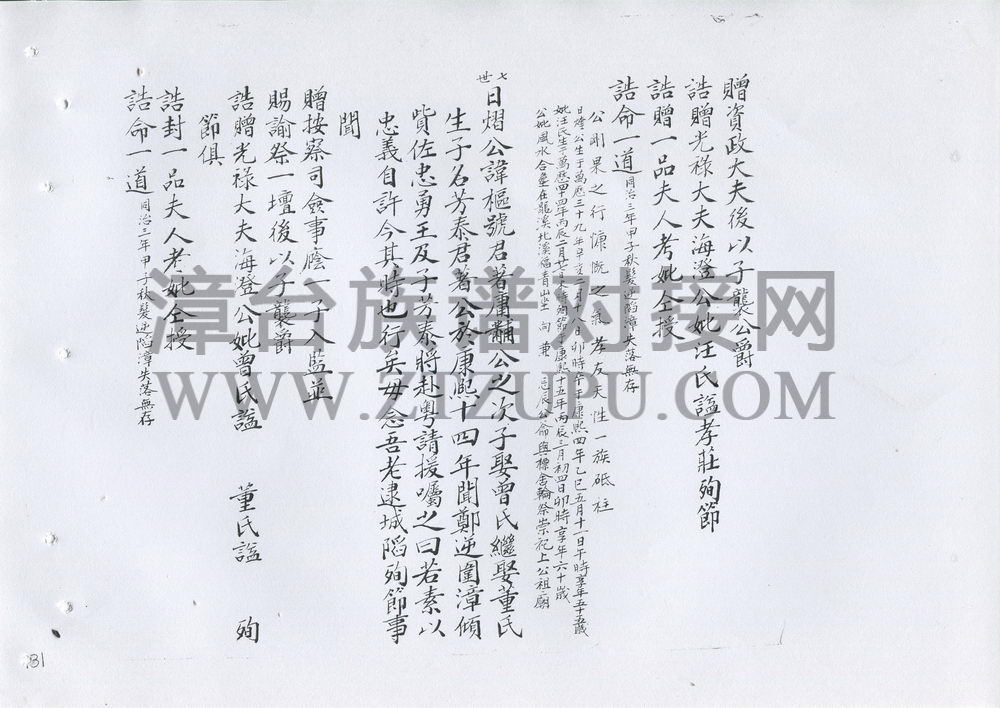 贈資政大夫後以子襲公爵
誥贈光祿大夫海澄公妣汪氏謚孝莊殉節
誥贈一品夫人考妣仝授
誥命一道同治三年甲子秋髮逆陷漳失落無存
公剛果之行慷慨之氣孝友天性一族砥柱
公生于萬曆三十九年辛亥月日卯時卒于康熙四年乙巳五月十一日午時享年五十五歲
妣汪氏生于萬曆四十四年丙辰二月廿康熙十五年丙辰三月初四日卯時享年六十歲
公妣風水合塟在龍溪北溪向兼公侖與標舍輪祭崇祀上公祖廟
七世
日熠公諱樞號君著庸黼公之次子娶曾氏繼娶董氏
生子名芳泰君著公於康熙十四年聞鄭逆圍漳傾
貲佐忠勇王及子芳泰將赴粵請援囑之曰若素以
忠義自許今其時也行矣毋念吾老逮城陷殉節事
聞
贈按察司僉事廕一子入監並
賜諭祭一壇後以子襲爵
誥贈光祿大夫海澄公妣曾氏謚 董氏謚 殉
節俱
誥封一品夫人考妣仝授
誥命一道同治三年甲子秋髮逆陷漳失落無存
漳台族谱对接网
WWW.ZTZUPU.COM
81